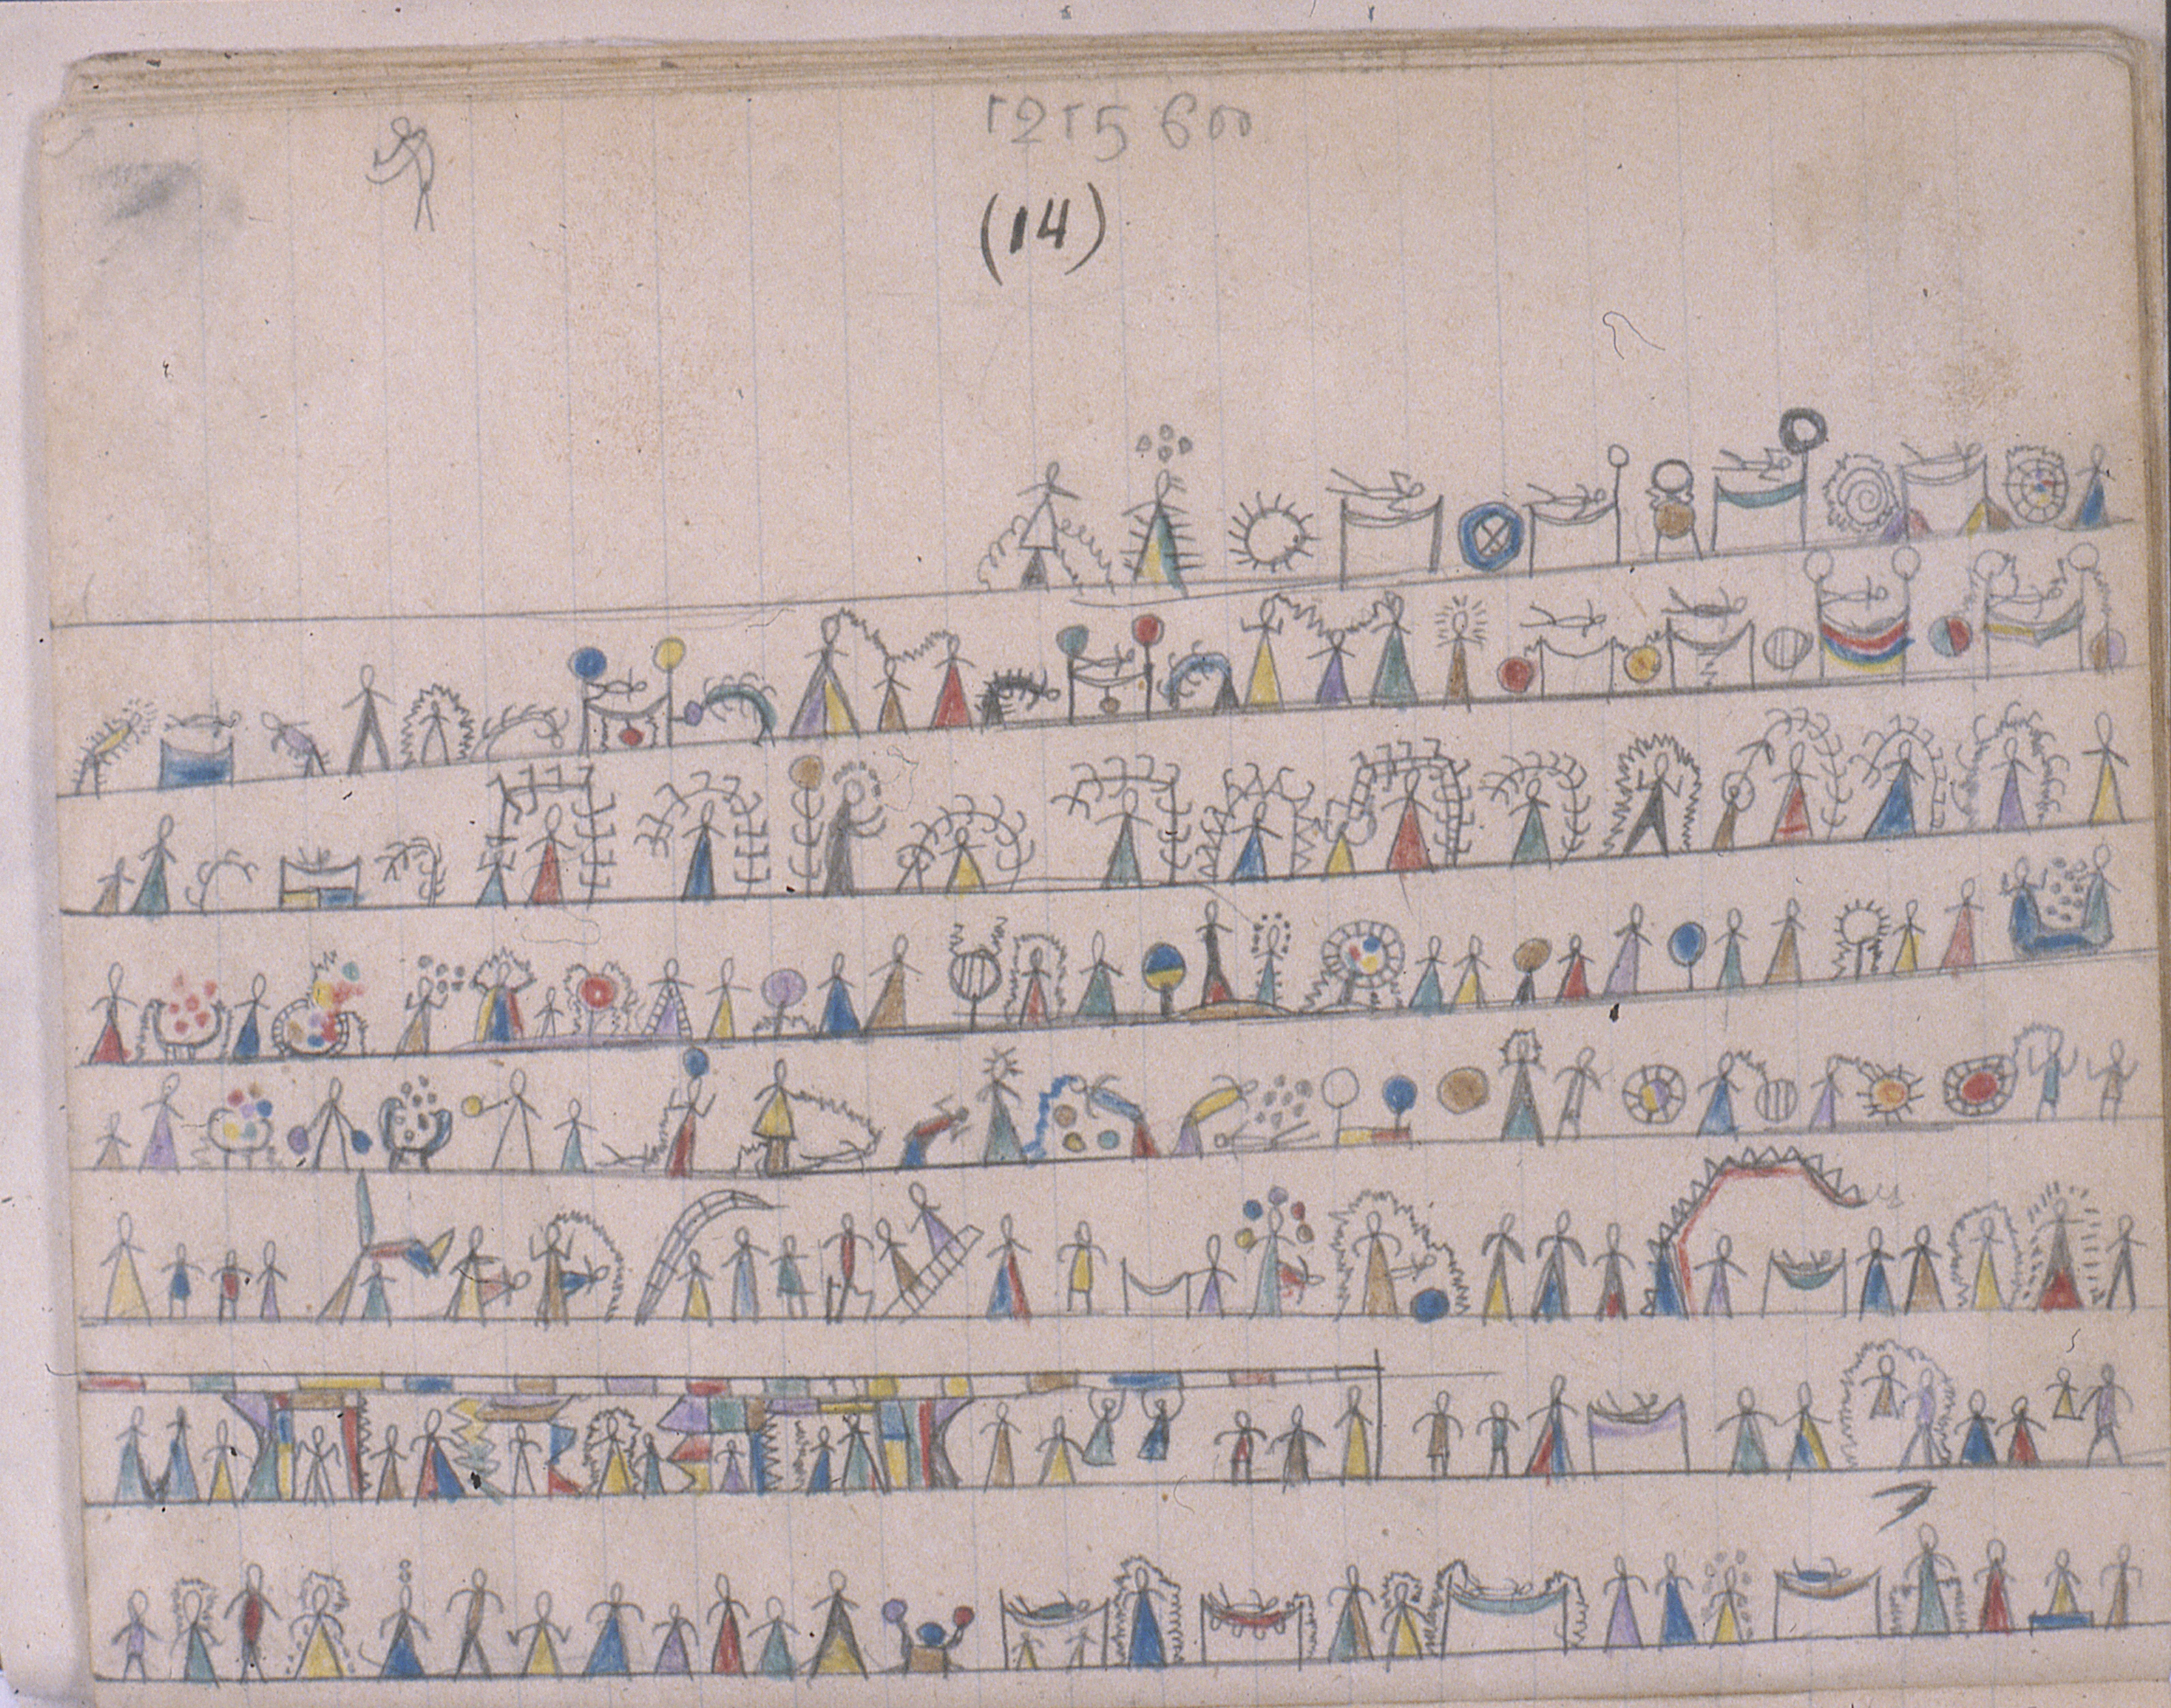 1215600
(14)